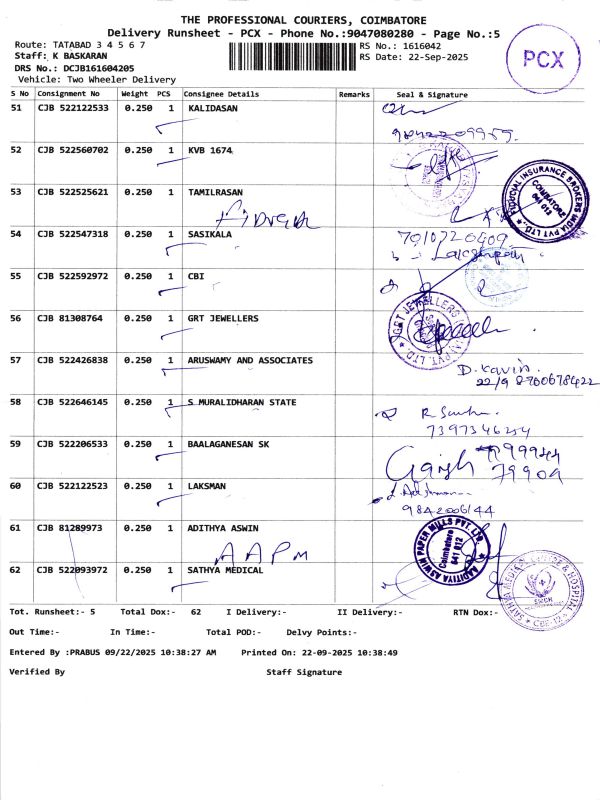 THE PROFESSIONAL COURIERS, COIMBATORE
Delivery Runsheet - PCX - Phone No.:9047080280 - Page No.:5
Route: TATABAD 3 4 5 6 7
RS No.: 1616042
Staff: K BASKARAN
RS Date: 22-Sep-2025
DRS No.: DCJB161604205
Vehicle: Two Wheeler Delivery
PCX
S No Consignment No Weight PCS Consignee Details Remarks Seal & Signature
51 CJB 522122533 0.250 1 KALIDASAN
52 CJB 522560702 0.250 1 KVB 1674
53 CJB 522525621 0.250 1 TAMILRASAN
FIDUCIAL INSURANCE BROKERS INDIA PVT LTD. COIMBATORE 641 012
54 CJB 522547318 0.250 1 SASIKALA
7010720409
55 CJB 522592972 0.250 1 CBI
56 CJB 81308764 0.250 1 GRT JEWELLERS
GRT JEWELLERS PVT. LTD.
57 CJB 522426838 0.250 1 ARUSWAMY AND ASSOCIATES
D. Kavin.
22/9 8760678422
58 CJB 522646145 0.250 1 S MURALIDHARAN STATE
7397346254
59 CJB 522206533 0.250 1 BAALAGANESAN SK
60 CJB 522122523 0.250 1 LAKSMAN
9842006144
61 CJB 81289973 0.250 1 ADITHYA ASWIN
AAPM
AADITYA ASWIN PAPER MILLS PVT. LTD. Coimbatore 641 012
62 CJB 522093972 0.250 1 SATHYA MEDICAL
SATHYA MEDICAL CENTRE & HOSPITAL SMCH CBE-12
Tot. Runsheet:- 5 Total Dox:- 62 I Delivery:- II Delivery:- RTN Dox:-
Out Time:- In Time:- Total POD:- Delvy Points:-
Entered By :PRABUS 09/22/2025 10:38:27 AM Printed On: 22-09-2025 10:38:49
Verified By Staff Signature